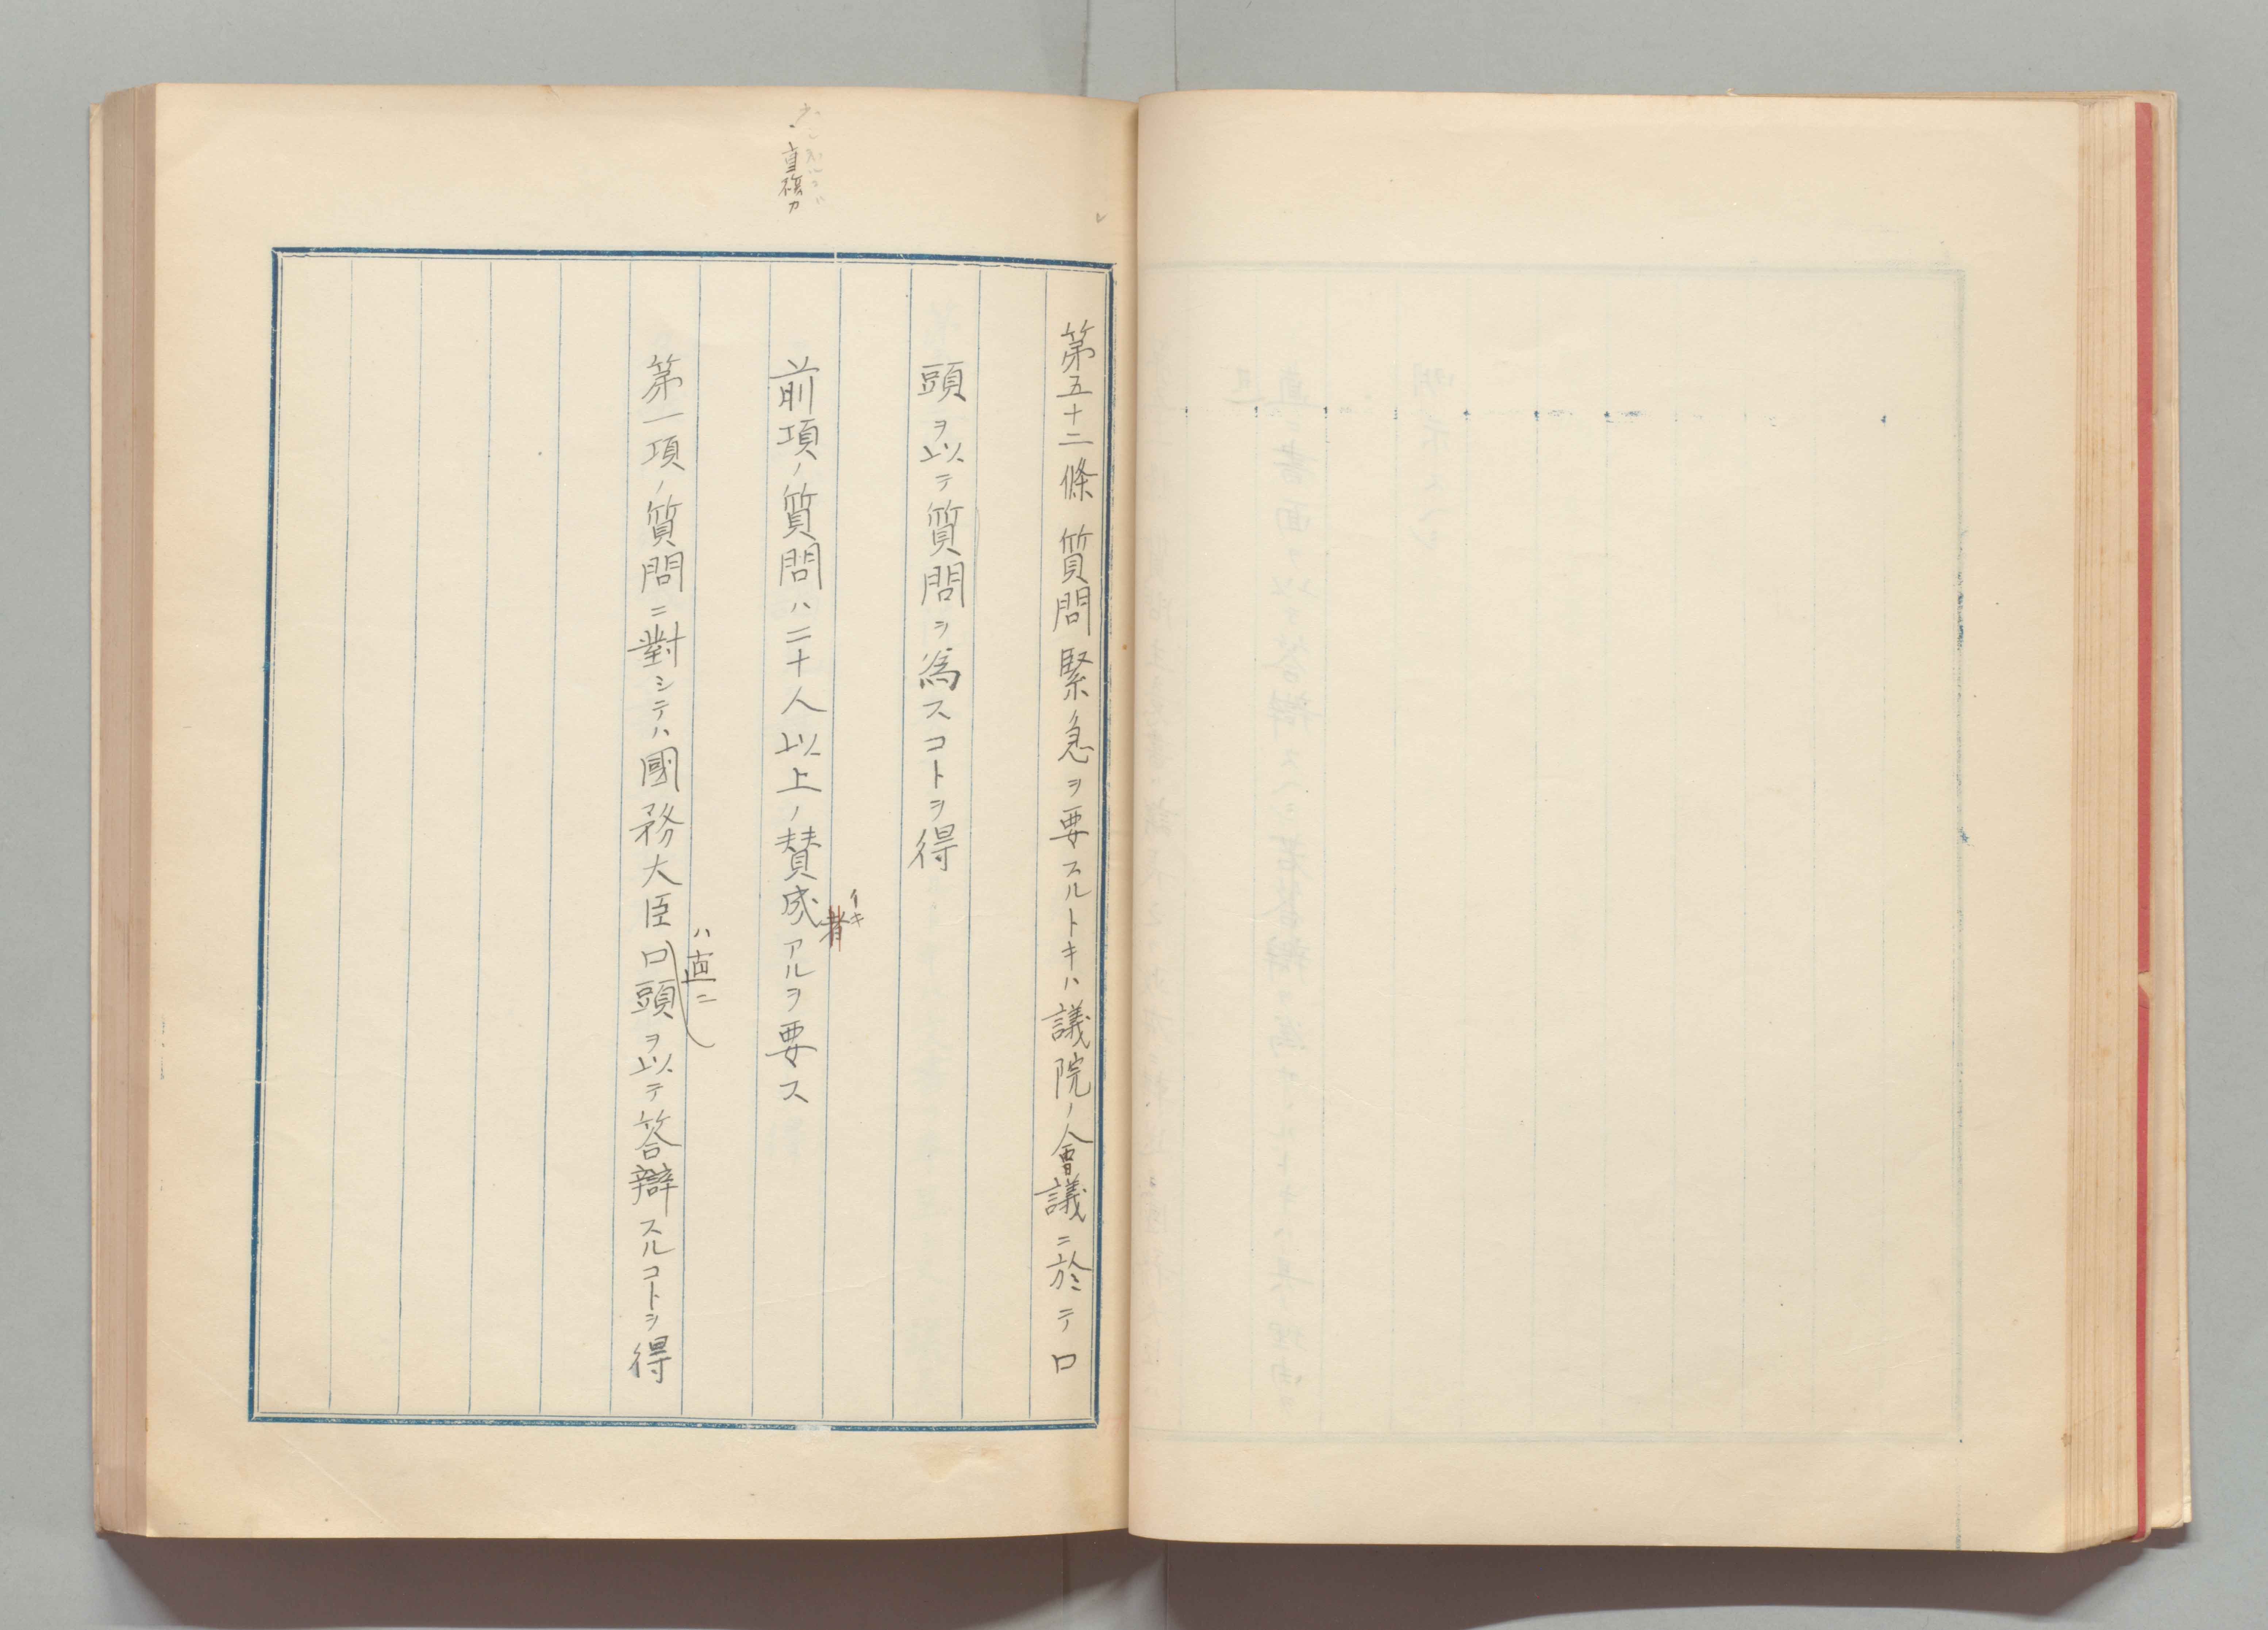 第五十二條 質問緊急ヲ要スルトキハ議院ノ會議ニ於テ口
頭ヲ以テ質問ヲ為スコトヲ得
者
イキ
前項ノ質問ハ二十人以上ノ賛成アルヲ要ス
ハ直ニ
第一項ノ質問ニ對シテハ國務大臣口頭ヲ以テ答辯スルコトヲ得